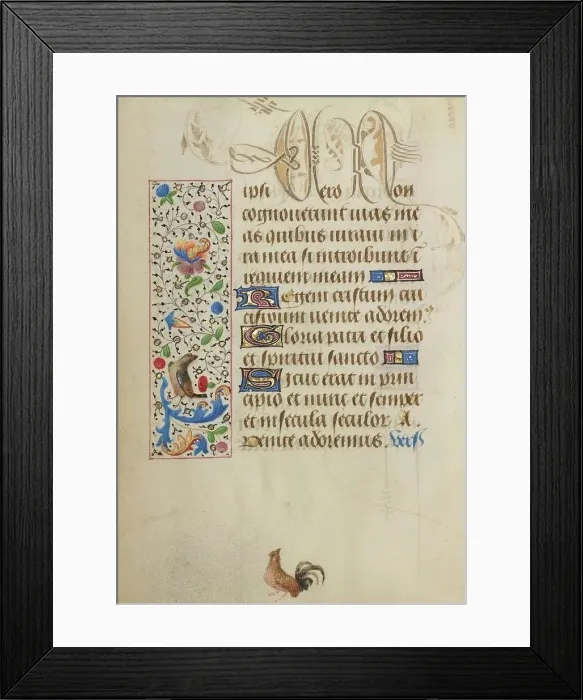 ipsi vero non
cognoverunt vias me
as quibus iuravi in i
ra mea si introibunt i
requiem meam
Regem cristum cru
cifixum venite adorem
Gloria patri et filio
et spiritui sancto
Sicut erat in prin
cipio et nunc et semper
et in secula seculor. A.
Venite adoremus. Vers